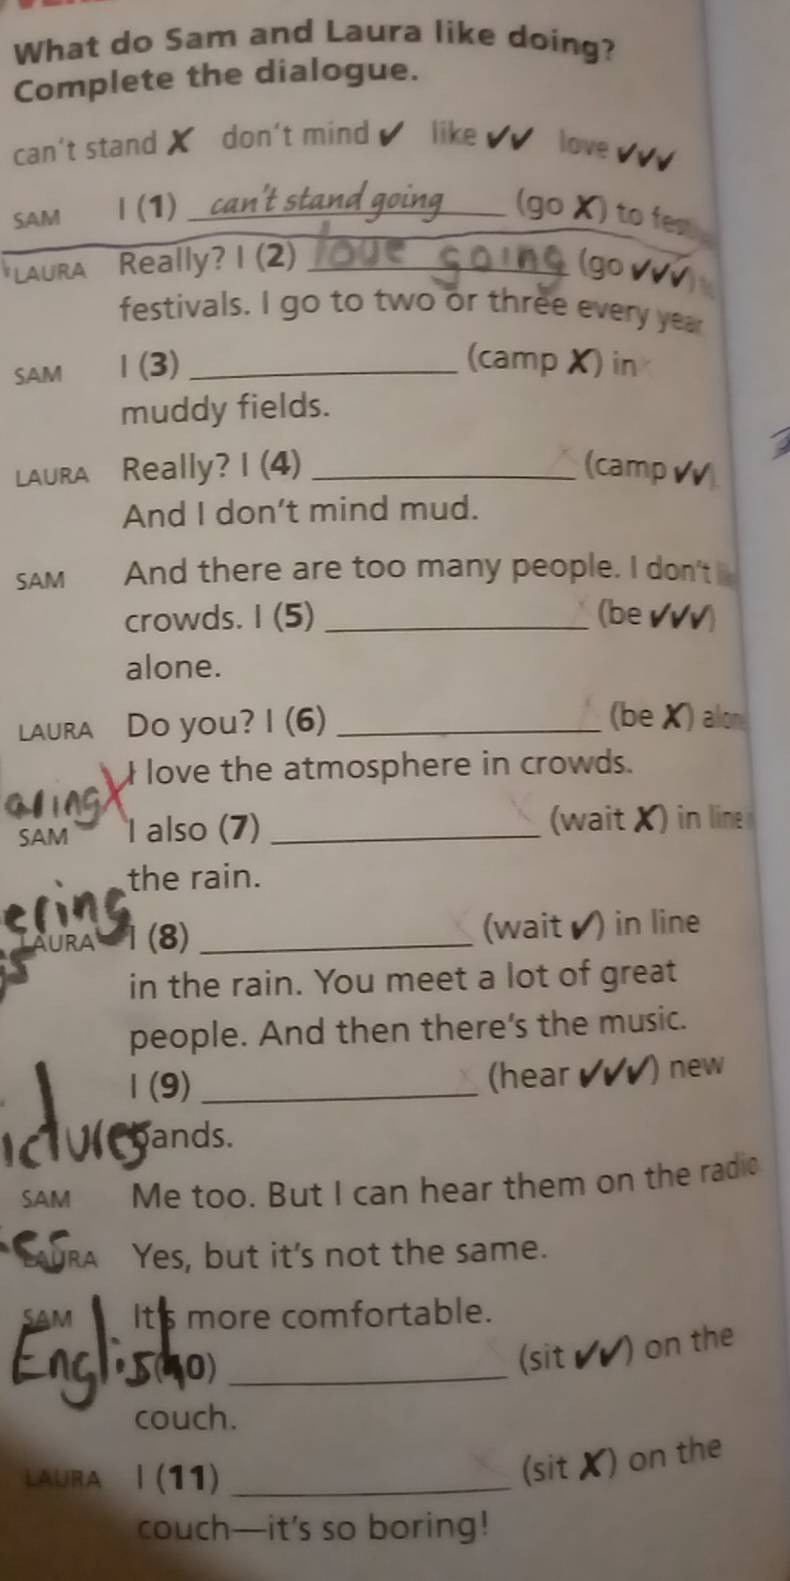 What do Sam and Laura like doing?
Complete the dialogue.
can't stand ✗ don't mind ✓ like ✓✓ love ✓✓✓
SAM I (1) can't stand going (go ✗) to
LAURA Really? I (2) love going (go ✓✓✓)
festivals. I go to two or three every year
SAM I (3) ____________ (camp ✗) in
muddy fields.
LAURA Really? I (4) ____________ (camp ✓✓).
And I don't mind mud.
SAM And there are too many people. I don't
crowds. I (5) ____________ (be ✓✓✓)
alone.
LAURA Do you? I (6) ____________ (be ✗)
I love the atmosphere in crowds.
SAM I also (7) ____________ (wait ✗) in line
the rain.
ering
LAURA I (8) ____________ (wait ✓) in line
in the rain. You meet a lot of great
people. And then there's the music.
I (9) ____________ (hear ✓✓✓) new
bands.
SAM Me too. But I can hear them on the radio
LAURA Yes, but it's not the same.
SAM It's more comfortable.
English (10) ____________ (sit ✓✓) on the
couch.
LAURA I (11) ____________ (sit ✗) on the
couch—it's so boring!